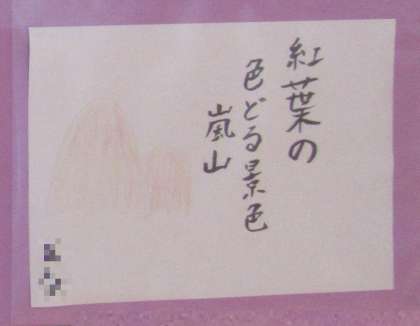 紅葉の
色どる景色
嵐山